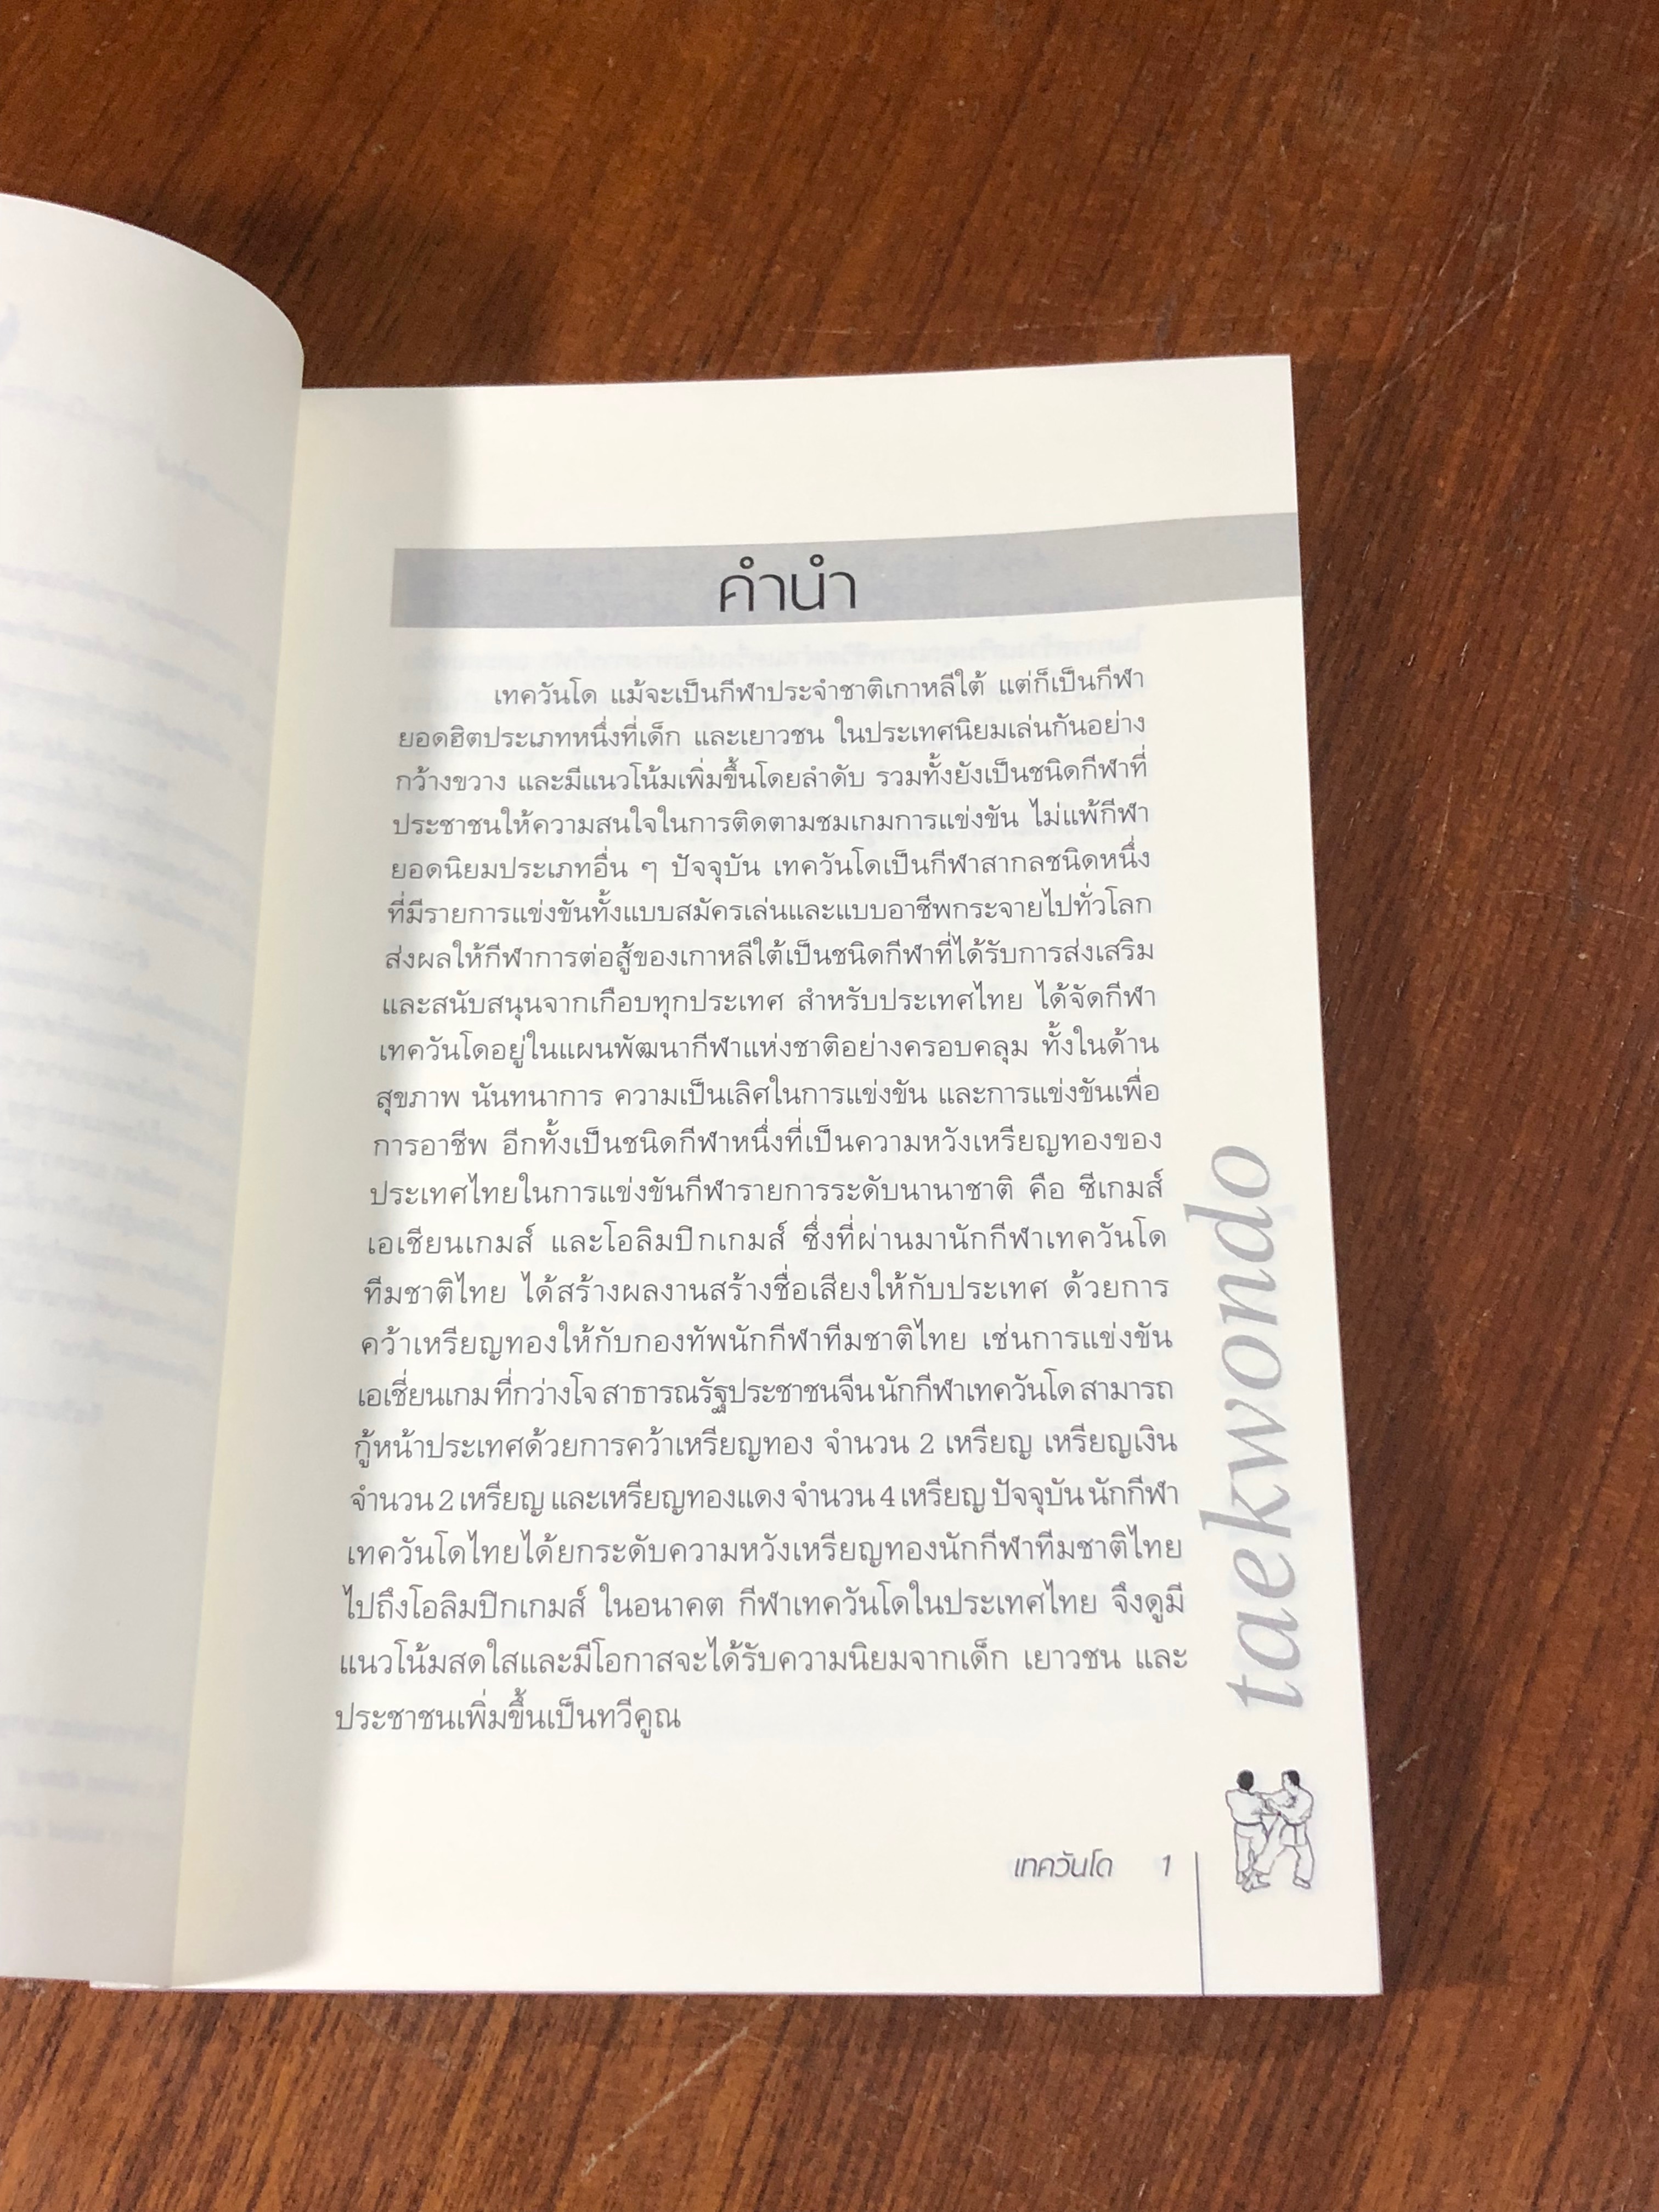 คำนำ
เทควันโด แม้จะเป็นกีฬาประจำชาติเกาหลีใต้ แต่ก็เป็นกีฬา
ยอดฮิตประเภทหนึ่งที่เด็ก และเยาวชน ในประเทศนิยมเล่นกันอย่าง
กว้างขวาง และมีแนวโน้มเพิ่มขึ้นโดยลำดับ รวมทั้งยังเป็นชนิดกีฬาที่
ประชาชนให้ความสนใจในการติดตามชมเกมการแข่งขัน ไม่แพ้กีฬา
ยอดนิยมประเภทอื่น ๆ ปัจจุบัน เทควันโดเป็นกีฬาสากลชนิดหนึ่ง
ที่มีรายการแข่งขันทั้งแบบสมัครเล่นและแบบอาชีพกระจายไปทั่วโลก
ส่งผลให้กีฬาการต่อสู้ของเกาหลีใต้เป็นชนิดกีฬาที่ได้รับการส่งเสริม
และสนับสนุนจากเกือบทุกประเทศ สำหรับประเทศไทย ได้จัดกีฬา
เทควันโดอยู่ในแผนพัฒนากีฬาแห่งชาติอย่างครอบคลุม ทั้งในด้าน
สุขภาพ นันทนาการ ความเป็นเลิศในการแข่งขัน และการแข่งขันเพื่อ
การอาชีพ อีกทั้งเป็นชนิดกีฬาหนึ่งที่เป็นความหวังเหรียญทองของ
ประเทศไทยในการแข่งขันกีฬารายการระดับนานาชาติ คือ ซีเกมส์
เอเชียนเกมส์ และโอลิมปิกเกมส์ ซึ่งที่ผ่านมานักกีฬาเทควันโด
ทีมชาติไทย ได้สร้างผลงานสร้างชื่อเสียงให้กับประเทศ ด้วยการ
คว้าเหรียญทองให้กับกองทัพนักกีฬาทีมชาติไทย เช่นการแข่งขัน
เอเชี่ยนเกม ที่กว่างโจ สาธารณรัฐประชาชนจีน นักกีฬาเทควันโด สามารถ
กู้หน้าประเทศด้วยการคว้าเหรียญทอง จำนวน 2 เหรียญ เหรียญเงิน
จำนวน 2 เหรียญ และเหรียญทองแดง จำนวน 4 เหรียญ ปัจจุบัน นักกีฬา
เทควันโดไทยได้ยกระดับความหวังเหรียญทองนักกีฬาทีมชาติไทย
ไปถึงโอลิมปิกเกมส์ ในอนาคต กีฬาเทควันโดในประเทศไทย จึงดูมี
แนวโน้มสดใสและมีโอกาสจะได้รับความนิยมจากเด็ก เยาวชน และ
ประชาชนเพิ่มขึ้นเป็นทวีคูณ
taekwondo
เทควันโด 1